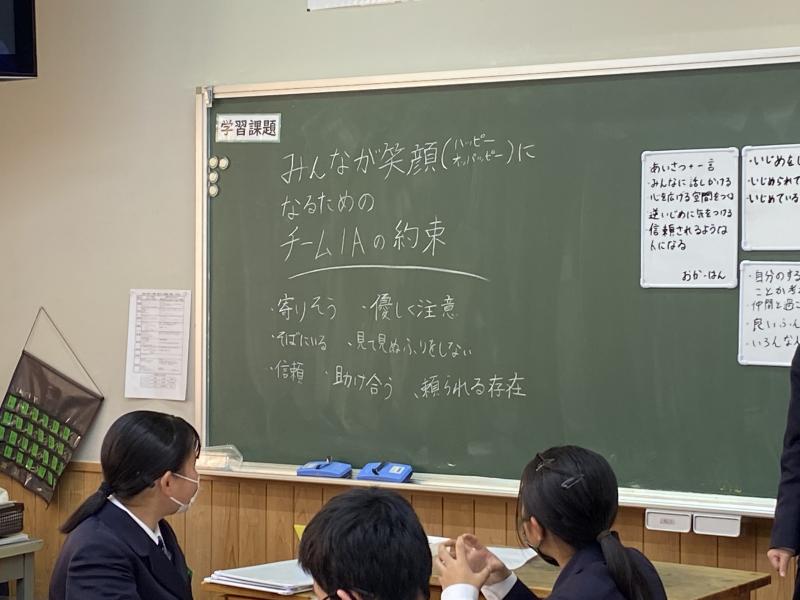 学習課題
みんなが笑顔(ハッピー オッパッピー)に
なるための
チーム1Aの約束
・寄りそう ・優しく注意
・そばにいる ・見て見ぬふりをしない
・信頼 ・助け合う ・頼られる存在
あいさつ+一言
・みんなに話しかける
心を広げる空間をつく
逆いじめに気をつける
信頼されるような
人になる
おか・はん
・いじめをし
・いじめられて
・いじめている
・自分のする
ことか考
・仲間と過ご
・良いふん
・いろんな人